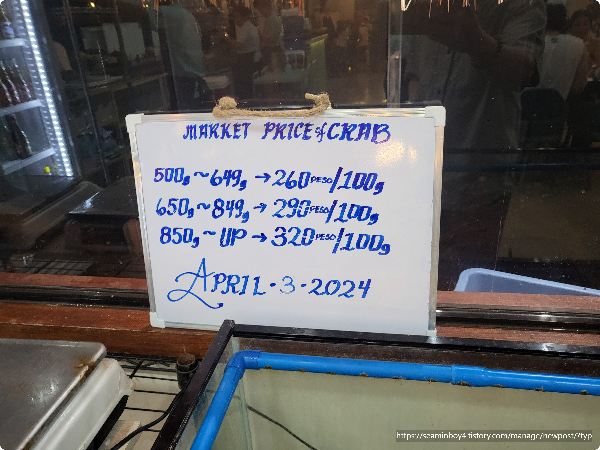 MARKET PRICE of CRAB
500g ~ 649g → 260 PESO/100g
650g ~ 849g → 290 PESO/100g
850g ~ UP → 320 PESO/100g
APRIL · 3 · 2024
https://seaminboy4.tistory.com/manage/newpost/?typ